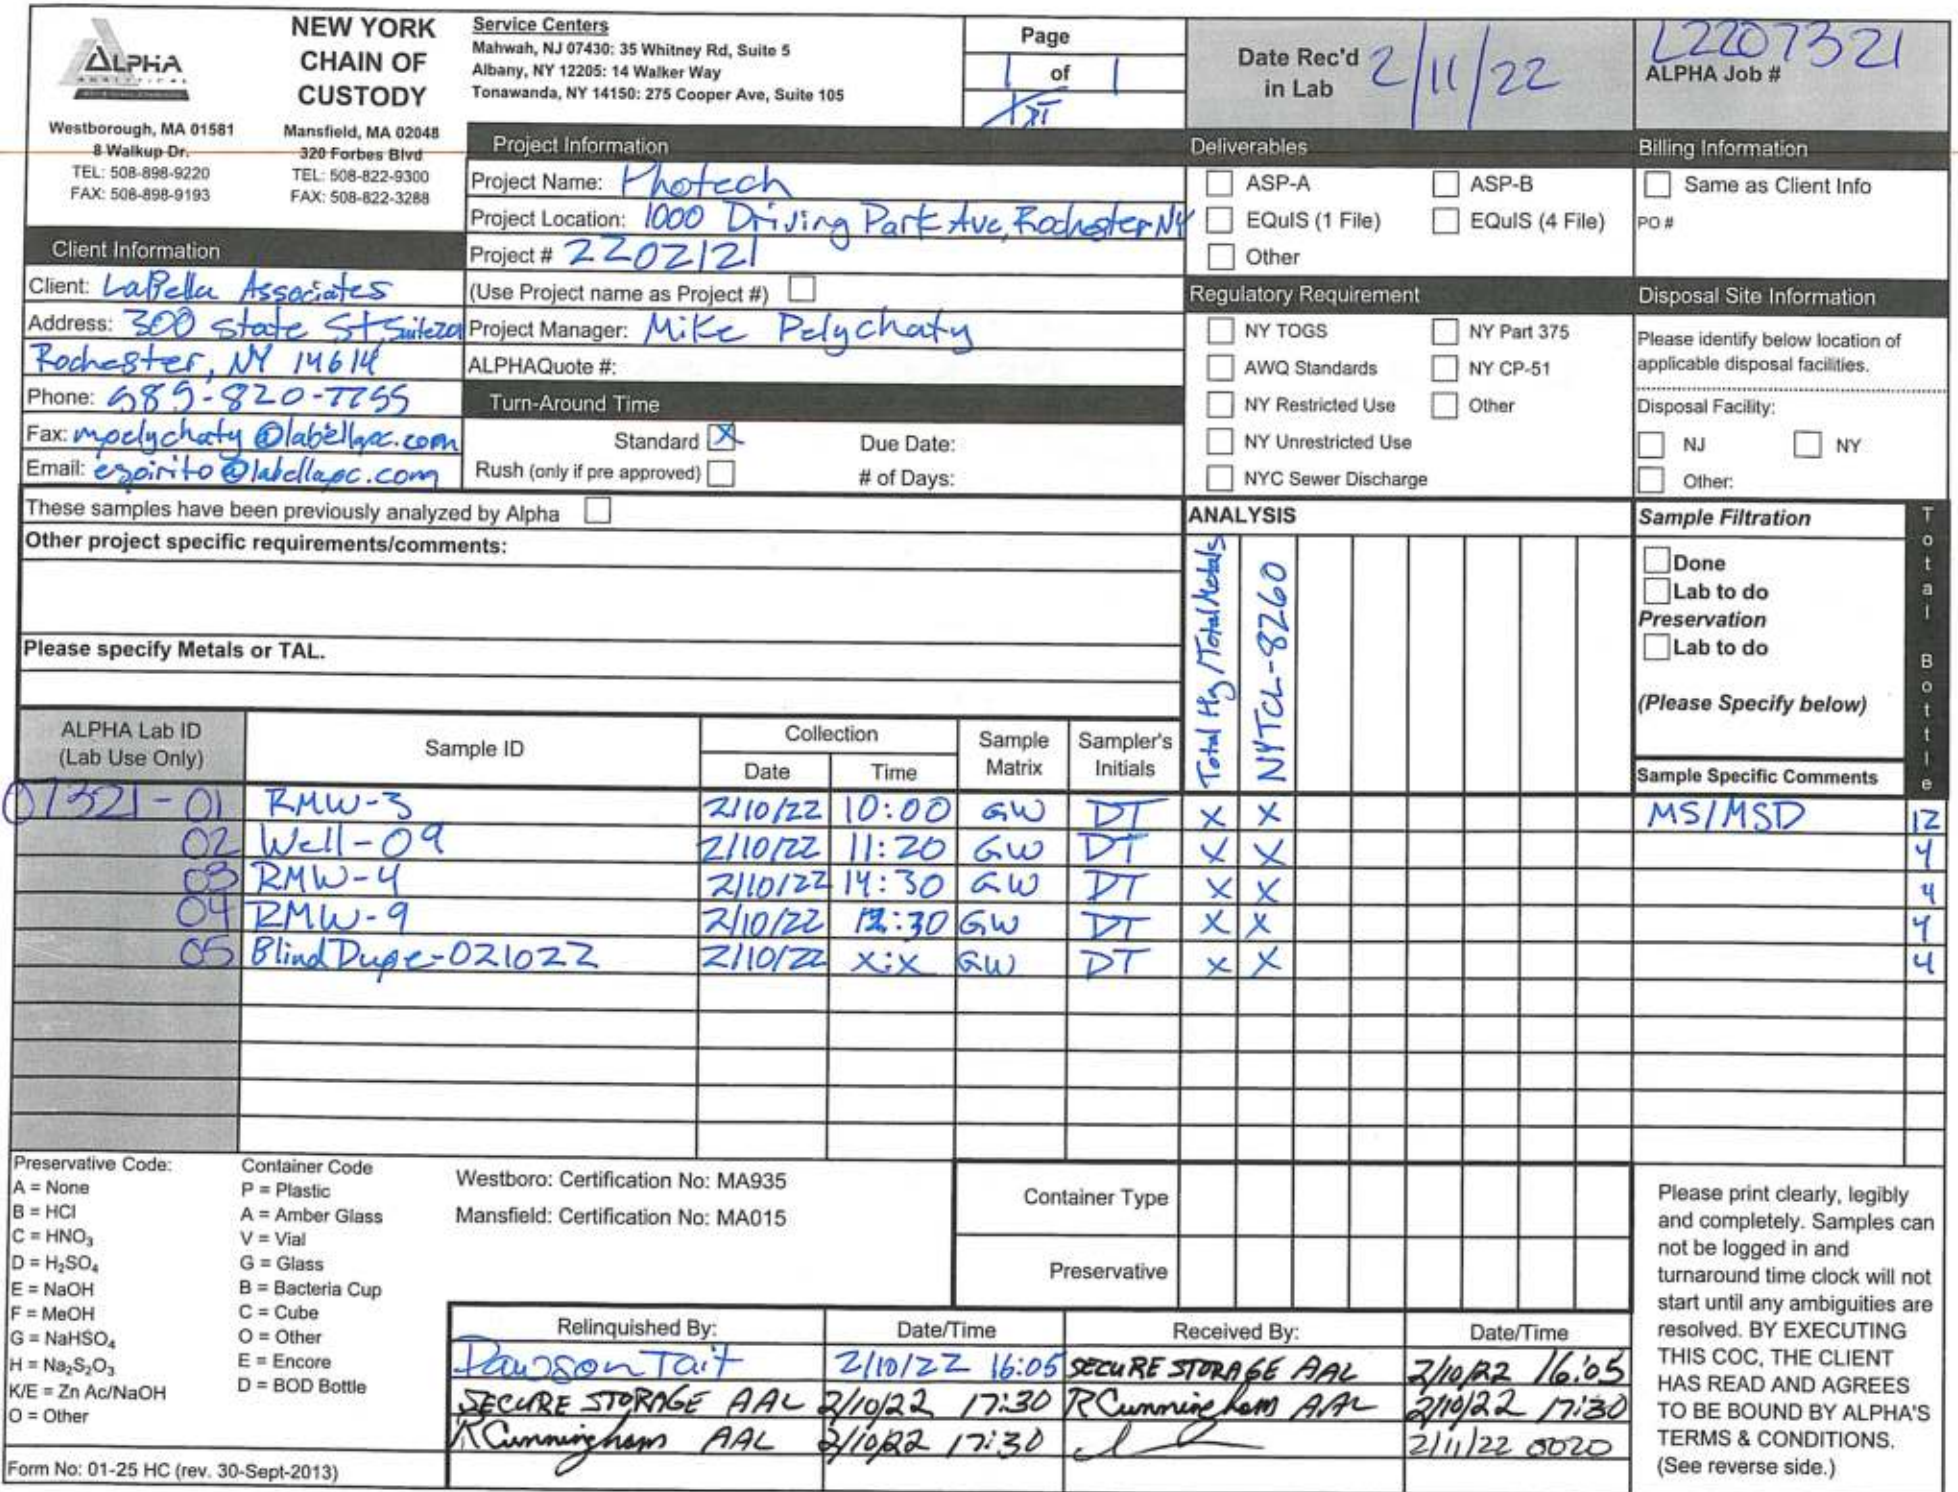 ALPHA
ANALYTICAL
Westborough, MA 01581
8 Walkup Dr.
TEL: 508-898-9220
FAX: 508-898-9193
NEW YORK
CHAIN OF
CUSTODY
Mansfield, MA 02048
320 Forbes Blvd
TEL: 508-822-9300
FAX: 508-822-3288
Service Centers
Mahwah, NJ 07430: 35 Whitney Rd, Suite 5
Albany, NY 12205: 14 Walker Way
Tonawanda, NY 14150: 275 Cooper Ave, Suite 105
Page
1 of 1
Date Rec'd
in Lab 2/11/22
L2207321
ALPHA Job #
Project Information
Project Name: Photech
Project Location: 1000 Driving Park Ave, Rochester NY
Project # 2202121
(Use Project name as Project #)
Project Manager: Mike Pelychaty
ALPHAQuote #:
Turn-Around Time
Standard X Due Date:
Rush (only if pre approved) # of Days:
Client Information
Client: LaBella Associates
Address: 300 State St, Suite 201
Rochester, NY 14614
Phone: 585-820-7755
Fax: mpelychaty@labellapc.com
Email: espirito@labellapc.com
Deliverables
ASP-A ASP-B
EQuIS (1 File) EQuIS (4 File)
Other
Regulatory Requirement
NY TOGS NY Part 375
AWQ Standards NY CP-51
NY Restricted Use Other
NY Unrestricted Use
NYC Sewer Discharge
Billing Information
Same as Client Info
PO #
Disposal Site Information
Please identify below location of
applicable disposal facilities.
Disposal Facility:
NJ NY
Other:
These samples have been previously analyzed by Alpha
Other project specific requirements/comments:
Please specify Metals or TAL.
ANALYSIS
Total Hg/Total Metals
NYTCL-8260
Sample Filtration
Done
Lab to do
Preservation
Lab to do
(Please Specify below)
Total Bottle
ALPHA Lab ID
(Lab Use Only)
Sample ID
Collection
Date Time
Sample
Matrix
Sampler's
Initials
Sample Specific Comments
07321-01 RMW-3 2/10/22 10:00 GW DT X X MS/MSD 12
02 Well-09 2/10/22 11:20 GW DT X X 4
03 RMW-4 2/10/22 14:30 GW DT X X 4
04 RMW-9 2/10/22 :30 GW DT X X 4
05 Blind Dupe-021022 2/10/22 X:X GW DT X X 4
Preservative Code:
A = None
B = HCl
C = HNO3
D = H2SO4
E = NaOH
F = MeOH
G = NaHSO4
H = Na2S2O3
K/E = Zn Ac/NaOH
O = Other
Container Code
P = Plastic
A = Amber Glass
V = Vial
G = Glass
B = Bacteria Cup
C = Cube
O = Other
E = Encore
D = BOD Bottle
Westboro: Certification No: MA935
Mansfield: Certification No: MA015
Container Type
Preservative
Relinquished By: Date/Time Received By: Date/Time
Dawson Tait 2/10/22 16:05 SECURE STORAGE AAL 2/10/22 16:05
SECURE STORAGE AAL 2/10/22 17:30 R Cunningham AAL 2/10/22 17:30
R Cunningham AAL 2/10/22 17:30 2/11/22 0020
Please print clearly, legibly
and completely. Samples can
not be logged in and
turnaround time clock will not
start until any ambiguities are
resolved. BY EXECUTING
THIS COC, THE CLIENT
HAS READ AND AGREES
TO BE BOUND BY ALPHA'S
TERMS & CONDITIONS.
(See reverse side.)
Form No: 01-25 HC (rev. 30-Sept-2013)